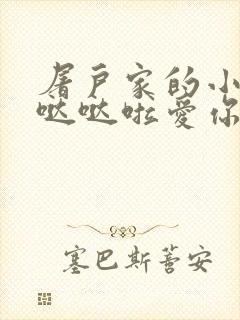 屠户家的小
哒哒啦爱你
塞巴斯蒂安